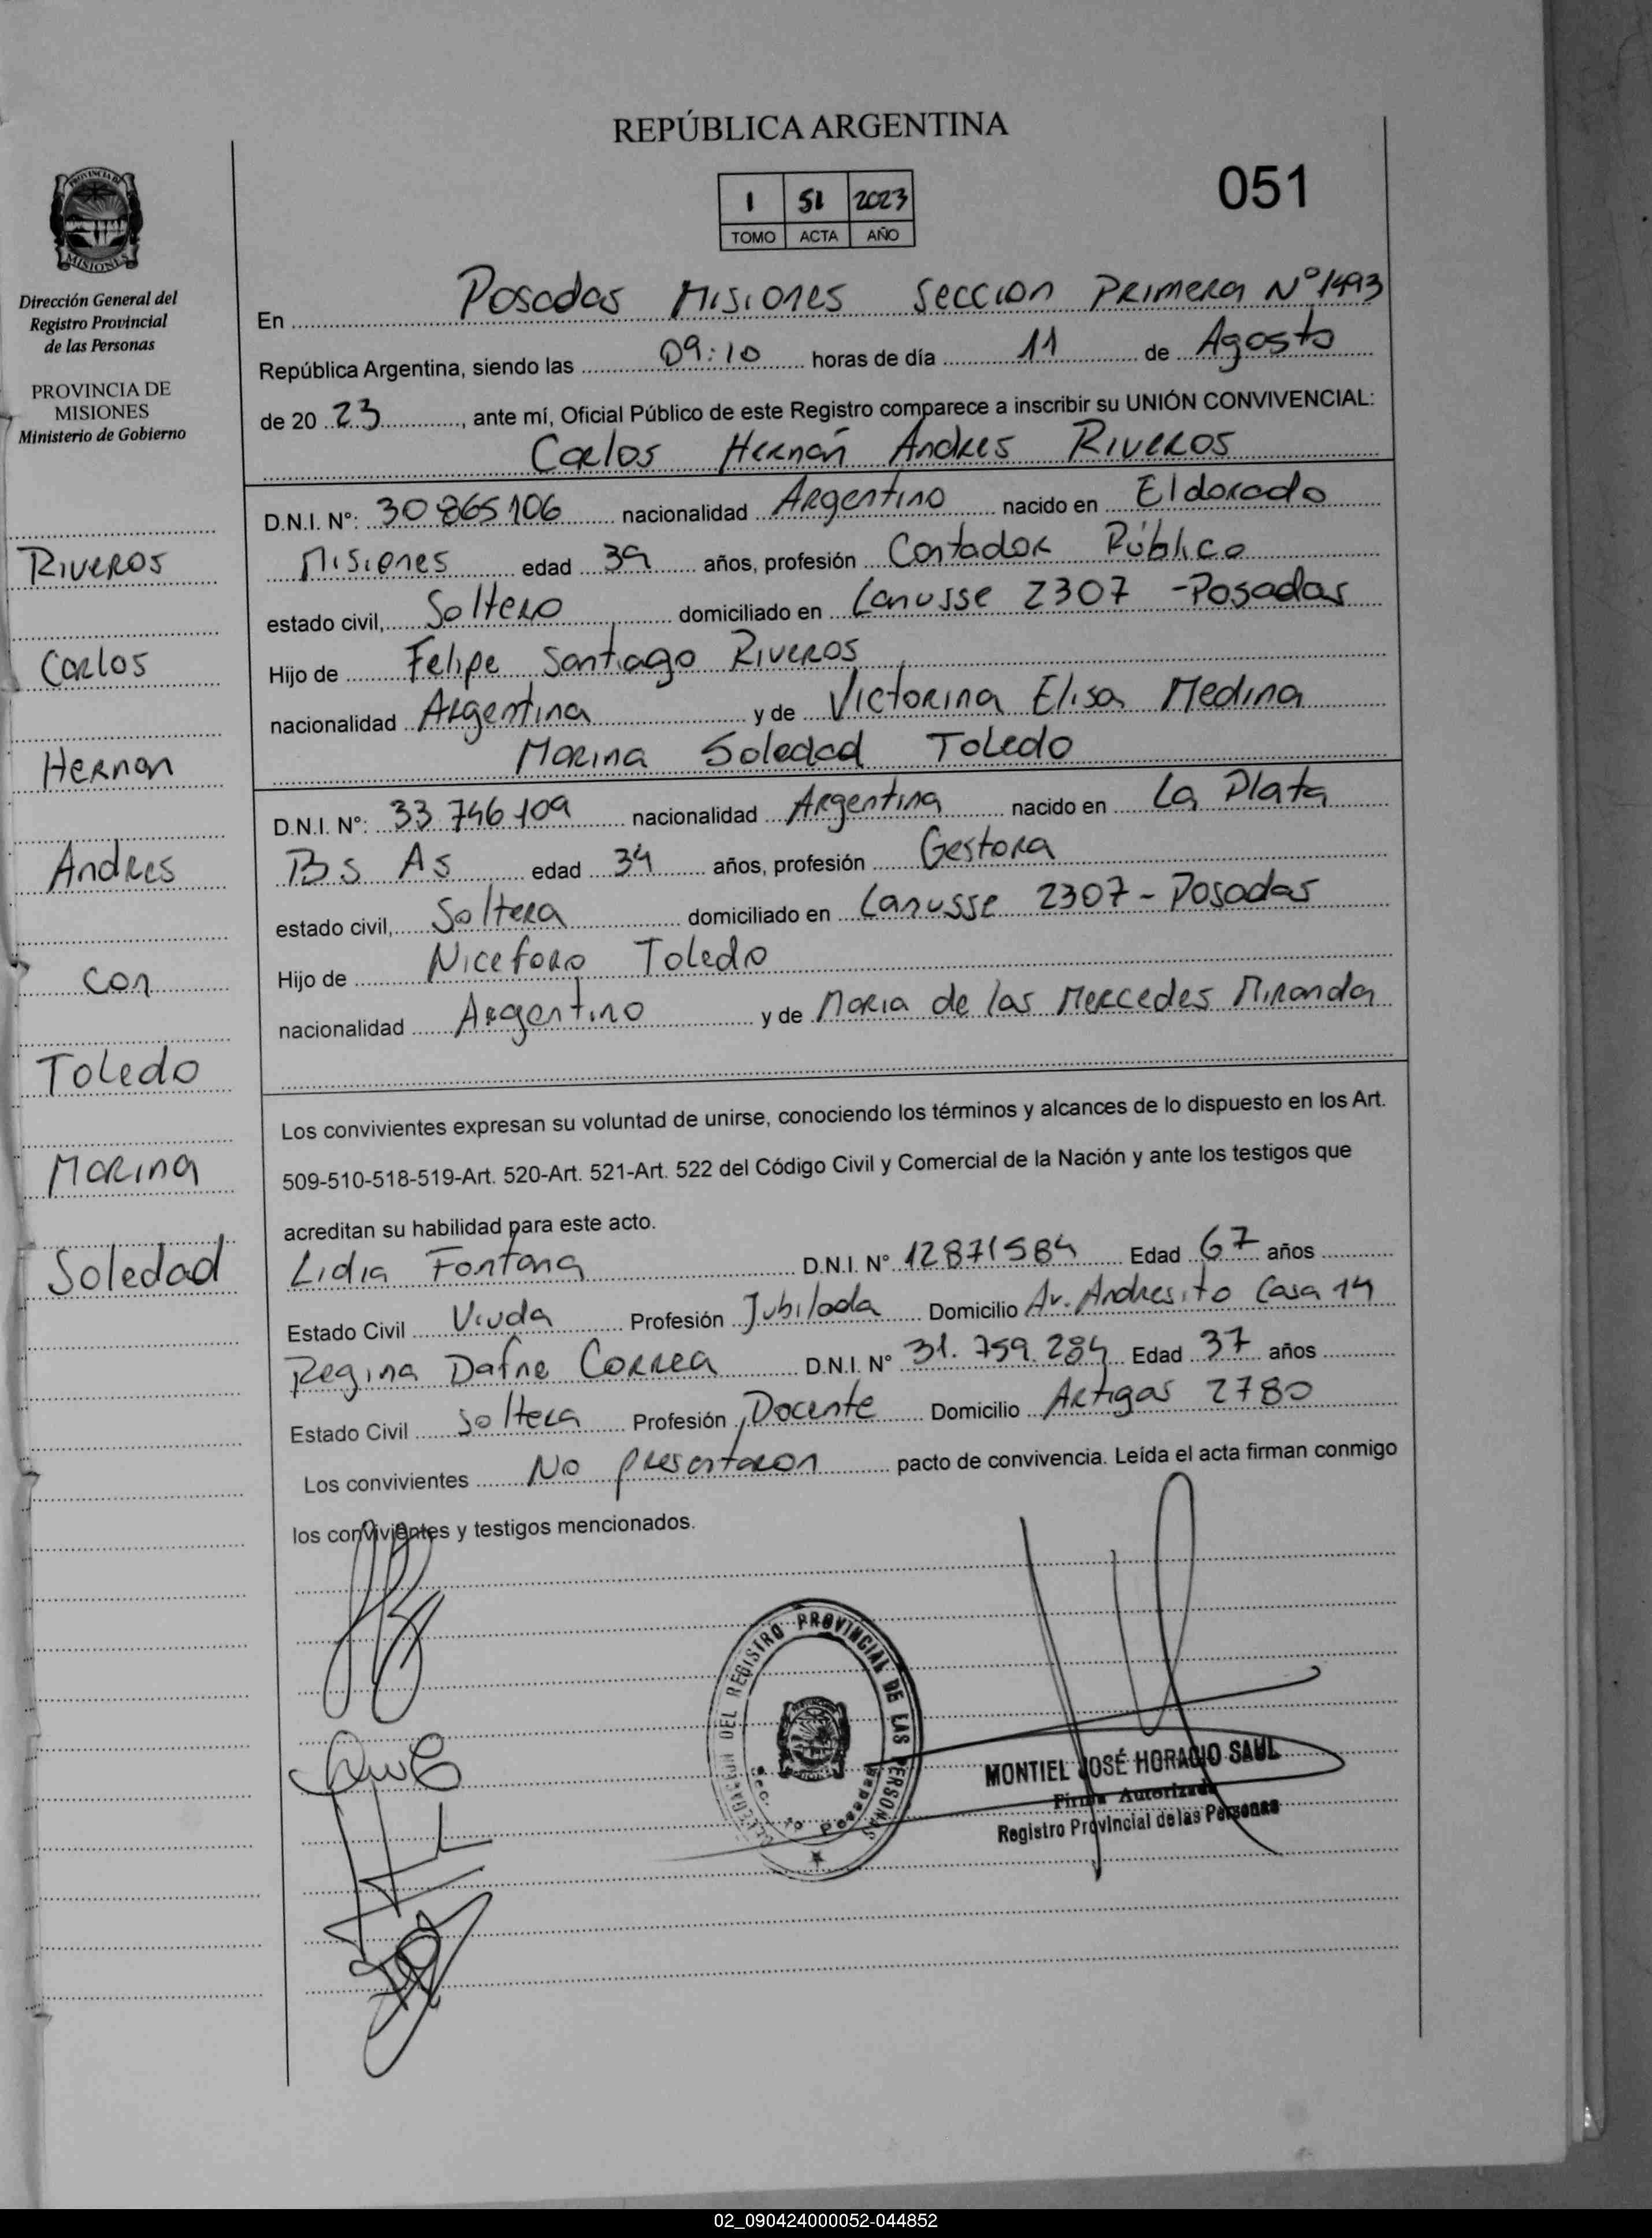 REPÚBLICA ARGENTINA
051
1 51 2023
TOMO ACTA AÑO
PROVINCIA DE
MISIONES
Dirección General del
Registro Provincial
de las Personas
PROVINCIA DE
MISIONES
Ministerio de Gobierno
Riveros
Carlos
Hernan
Andres
con
Toledo
Marina
Soledad
En Posadas Misiones Seccion Primera N° 1493
República Argentina, siendo las 09:10 horas de día 11 de Agosto
de 20 23, ante mí, Oficial Público de este Registro comparece a inscribir su UNIÓN CONVIVENCIAL:
Carlos Hernán Andres Riveros
D.N.I. N°: 30865106 nacionalidad Argentino nacido en Eldorado
Misiones edad 39 años, profesión Contador Público
estado civil, Soltero domiciliado en Lanusse 2307 - Posadas
Hijo de Felipe Santiago Riveros
nacionalidad Argentina y de Victorina Elisa Medina
Marina Soledad Toledo
D.N.I. N°: 33746109 nacionalidad Argentina nacido en La Plata
Bs As edad 34 años, profesión Gestora
estado civil, Soltera domiciliado en Lanusse 2307 - Posadas
Hijo de Niceforo Toledo
nacionalidad Argentino y de Maria de las Mercedes Miranda
Los convivientes expresan su voluntad de unirse, conociendo los términos y alcances de lo dispuesto en los Art.
509-510-518-519-Art. 520-Art. 521-Art. 522 del Código Civil y Comercial de la Nación y ante los testigos que
acreditan su habilidad para este acto.
Lidia Fontana D.N.I. N° 12871584 Edad 67 años
Estado Civil Viuda Profesión Jubilada Domicilio Av. Andresito Casa 14
Regina Dafne Correa D.N.I. N° 31.759.284 Edad 37 años
Estado Civil Soltera Profesión Docente Domicilio Artigas 2780
Los convivientes No presentaron pacto de convivencia. Leída el acta firman conmigo
los convivientes y testigos mencionados.
DEL REGISTRO PROVINCIAL DE LAS PERSONAS
Sec. 1° Posadas
MONTIEL JOSÉ HORACIO SAUL
Firma Autorizada
Registro Provincial de las Personas
02_090424000052-044852